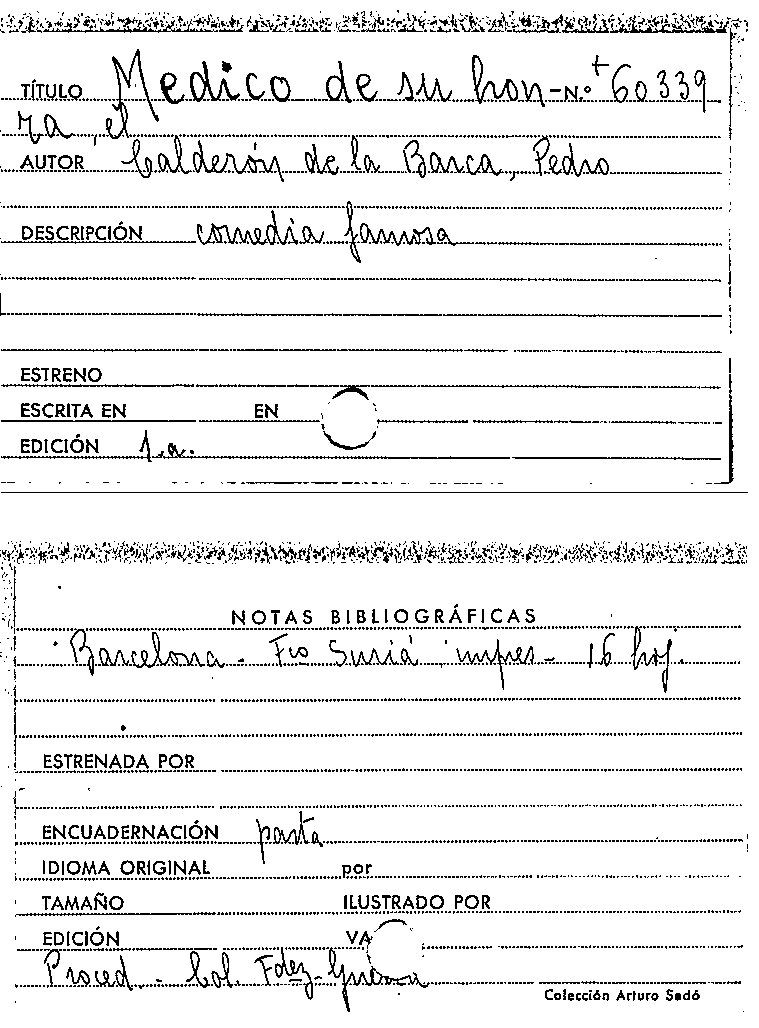 TÍTULO Medico de su hon- N.º +60339
ra, el
AUTOR Calderón de la Barca, Pedro
DESCRIPCIÓN comedia famosa
ESTRENO
ESCRITA EN EN
EDICIÓN 1.a.
NOTAS BIBLIOGRÁFICAS
Barcelona - Fco Suriá impres - 16 hoj.
ESTRENADA POR
ENCUADERNACIÓN pasta
IDIOMA ORIGINAL por
TAMAÑO ILUSTRADO POR
EDICIÓN VA
Proced. - Col. Fdez-Guerra
Colección Arturo Sedó